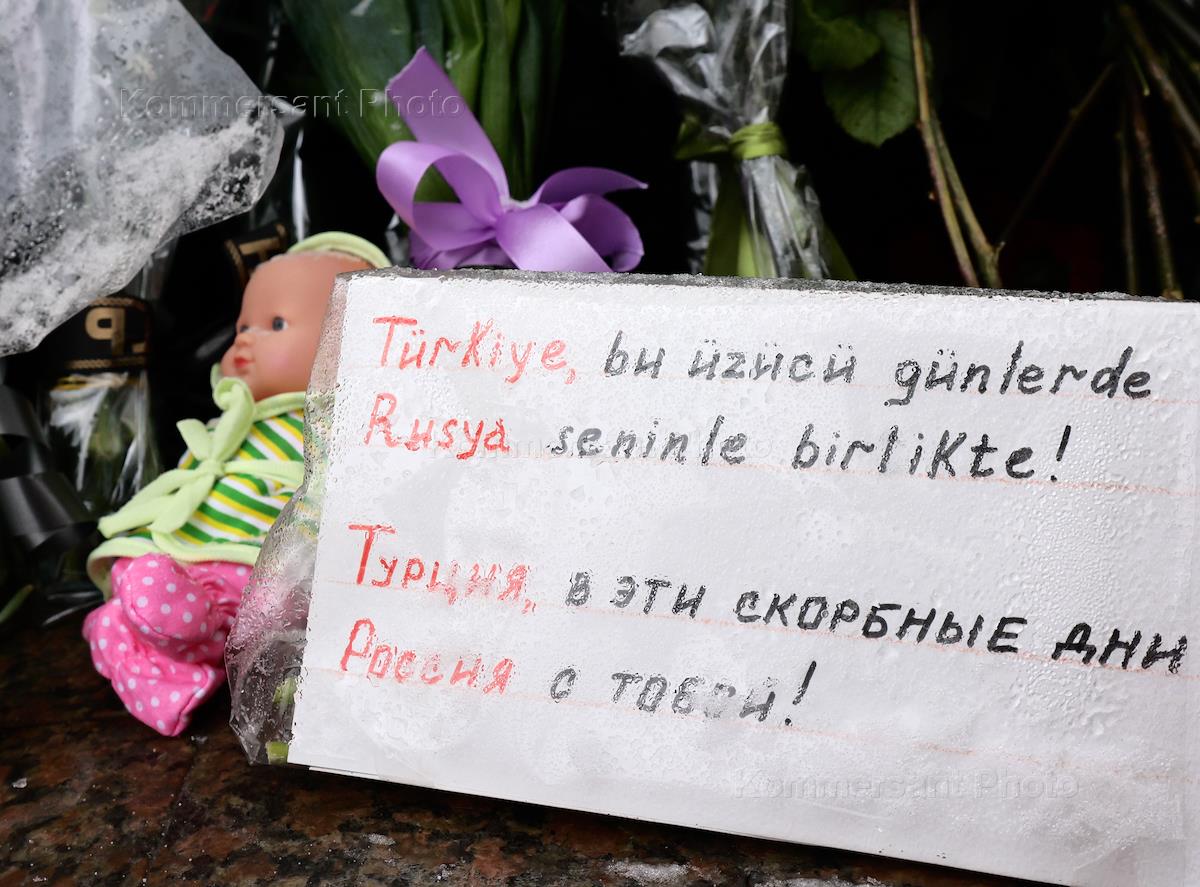 Kommersant Photo
Türkiye, bu üzücü günlerde
Rusya seninle birlikte!
Турция, в эти скорбные дни
Россия с тобой!
Kommersant Photo